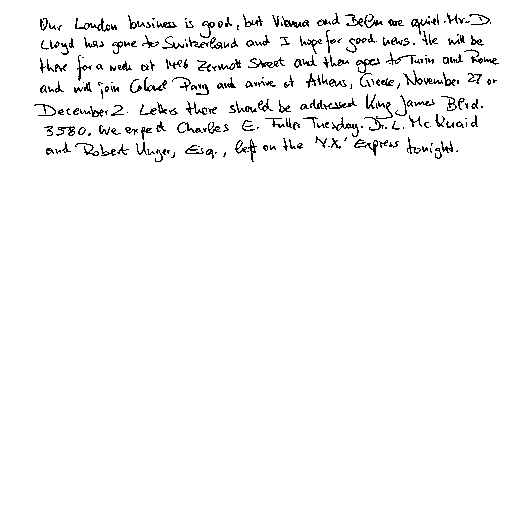 Our London business is good, but Vienna and Berlin are quiet. Mr. D.
Lloyd has gone to Switzerland and I hope for good news. He will be
there for a week at 1496 Zermott Street and then goes to Turin and Rome
and will join Colonel Parry and arrive at Athens, Greece, November 27 or
December 2. Letters there should be addressed King James Blvd.
3580. We expect Charles E. Fuller Tuesday. Dr. L. McQuaid
and Robert Unger, Esq., left on the "Y.X." Express tonight.